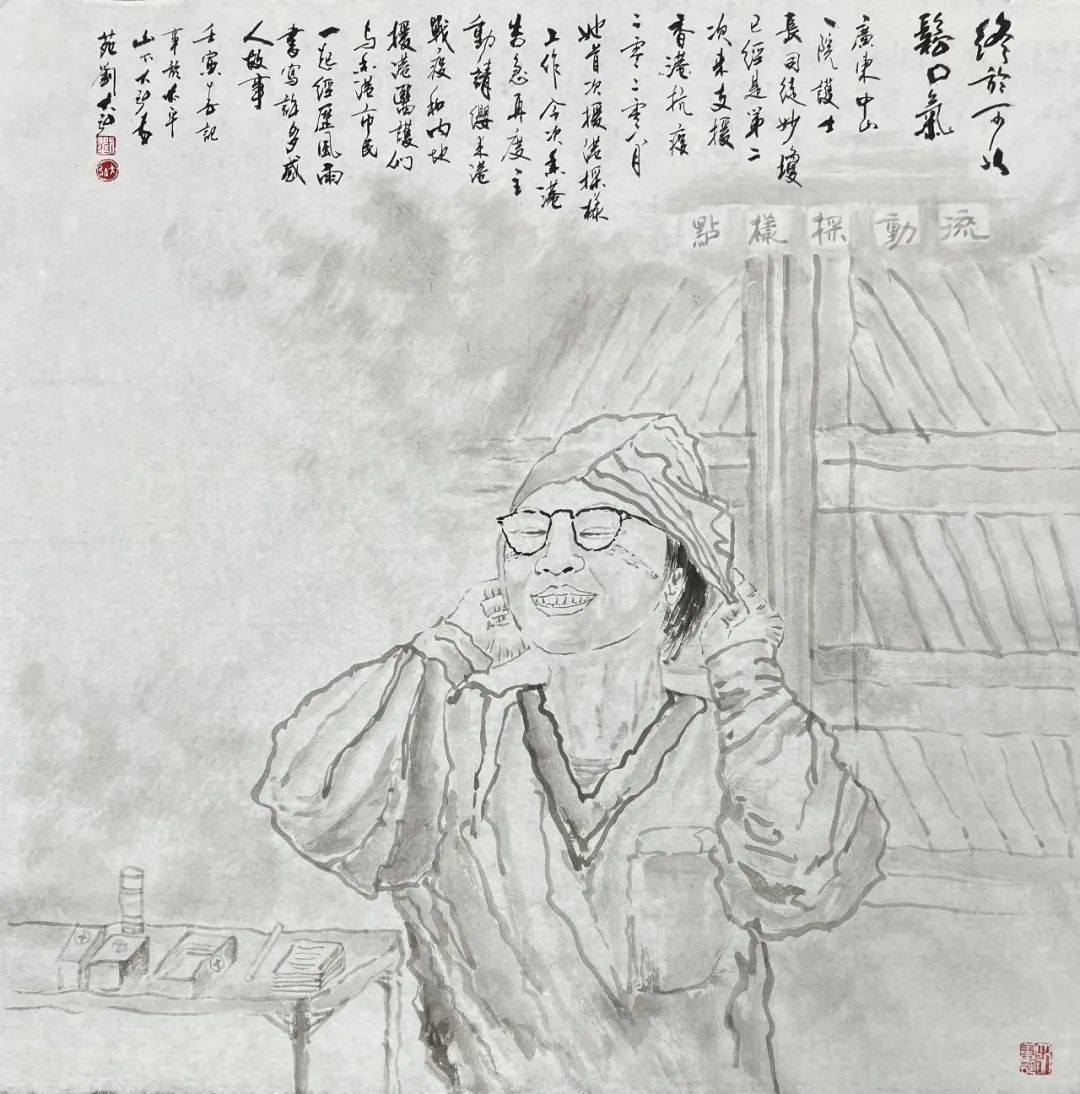 終於可以
鬆口氣
廣東中山
一院護士
長司徒妙瓊
已經是第二
次來支援
香港抗疫
二零二零八月
她首次援港採樣
工作今次香港
告急再度主
動請纓來港
戰疫和內地
援港醫護們
与香港市民
一起經歷風雨
書寫許多感
人故事
壬寅春記
事於太平
山下大畫
苑劉大
流動採樣點